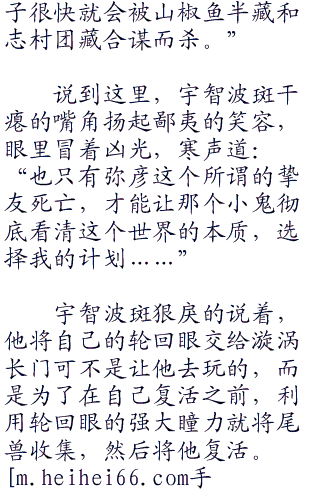 子很快就会被山椒鱼半藏和
志村团藏合谋而杀。”
说到这里，宇智波斑干
瘪的嘴角扬起鄙夷的笑容，
眼里冒着凶光，寒声道：
“也只有弥彦这个所谓的挚
友死亡，才能让那个小鬼彻
底看清这个世界的本质，选
择我的计划……”
宇智波斑狠戾的说着，
他将自己的轮回眼交给漩涡
长门可不是让他去玩的，而
是为了在自己复活之前，利
用轮回眼的强大瞳力就将尾
兽收集，然后将他复活。
[m.heihei66.com手